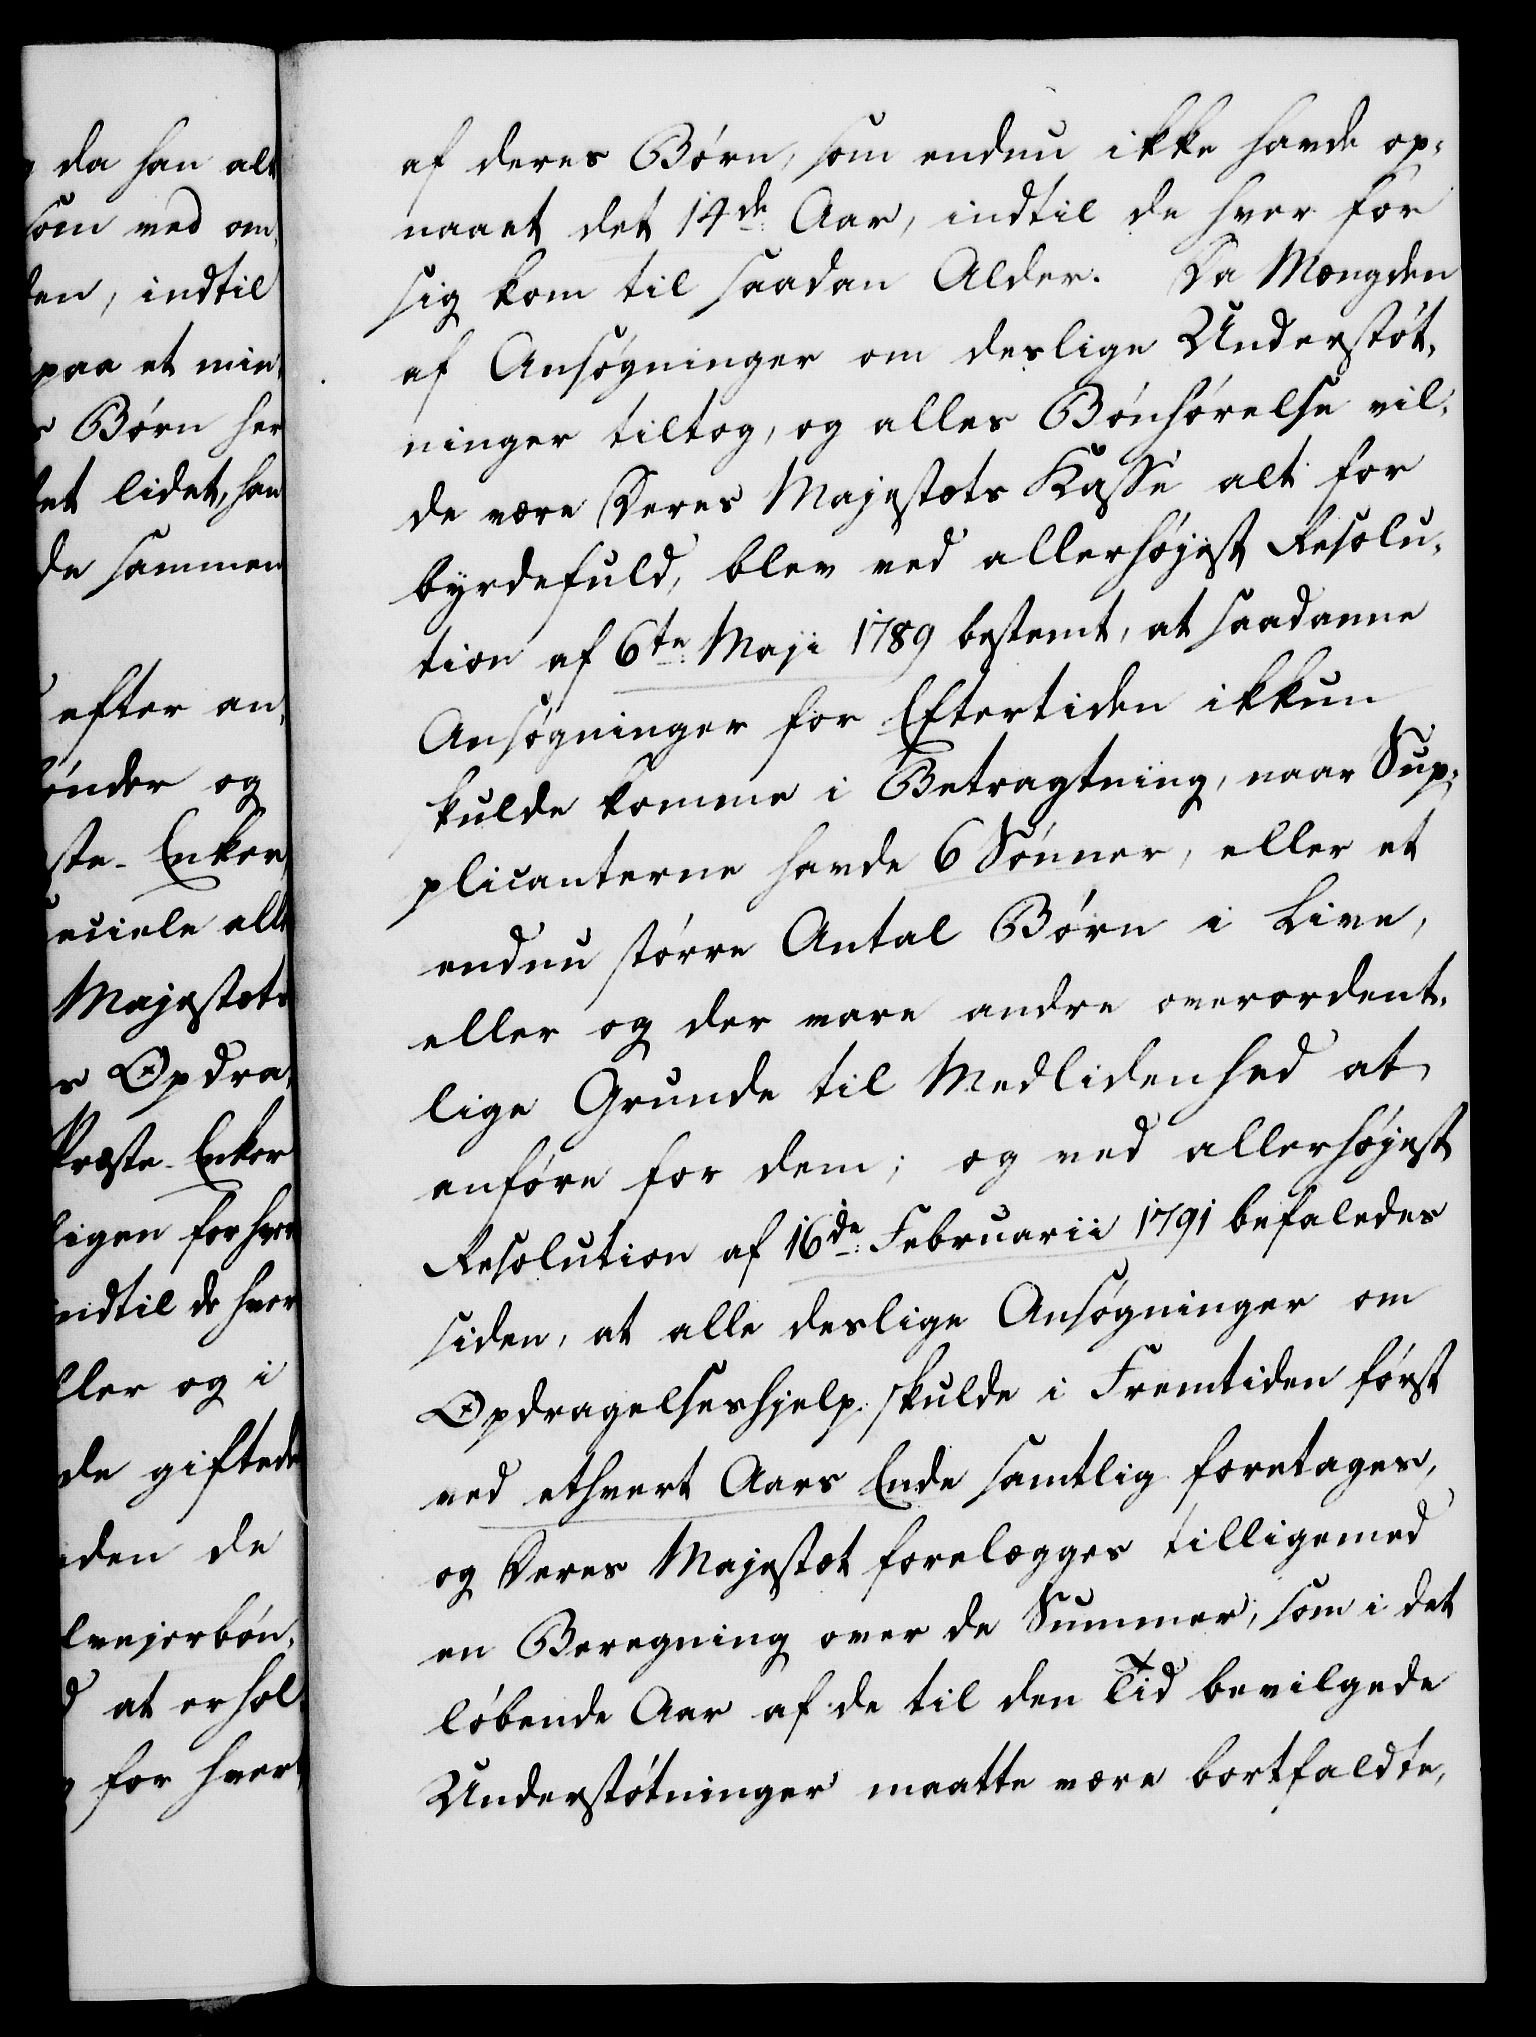 da han alt
som ved om,
den, indtil
paa et min,
Børn her
et lidet, han
de sammen
efter an,
ønder og
ste-Enker,
eciele all
Majestæts
s Opdra,
Præste-Enker
ligen for hver
indtil de hver
ller og i
de giftede
den de
lvejerbøn,
at erhol,
for hvert
af deres Børn, som endnu ikke havde op,
naaet det 14de Aar, indtil de hver for
sig kom til saadan Alder. Da Mængden
af Ansøgninger om deslige Understøt,
ninger tiltog, og alles Bønhørelse vil,
de være Deres Majestæts Kasse alt for
byrdefuld, blev ved allerhøjest Resolu,
tion af 6te Maji 1789 bestemt, at saadanne
Ansøgninger for Eftertiden ikkun
skulde komme i Betragtning, naar Sup,
plicanterne havde 6 Sønner, eller et
endnu større Antal Børn i Live,
eller og der vare andre overordent,
lige Grunde til Medlidenhed at
anføre for dem; og ved allerhøjest
Resolution af 16de Februarii 1791 befaledes
siden, at alle deslige Ansøgninger om
Opdragelseshjelp skulde i Fremtiden først
ved ethvert Aars Ende samtlig foretages,
og Deres Majestæt forelægges tilligemed
en Beregning over de Summer, som i det
løbende Aar af de til den Tid bevilgede
Understøtninger maatte være bortfaldte,